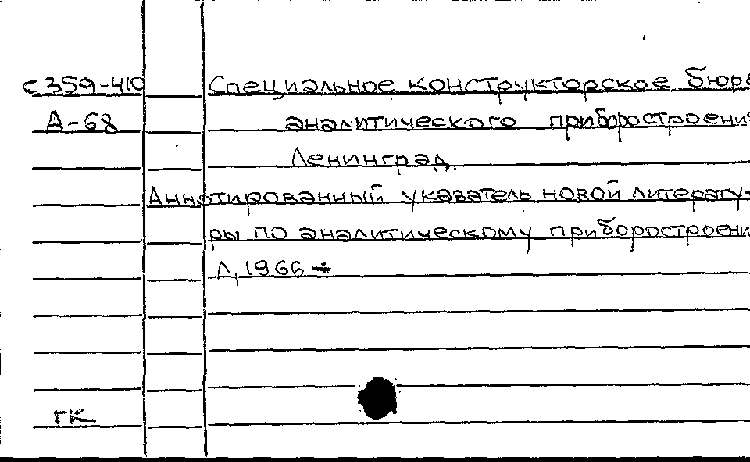 С359-410 Специальное конструкторское бюро
А-68 аналитического приборостроени
Ленинград
Аннотированный указатель новой литерату-
ры по аналитическому приборостроени
Л, 1966 ÷
ГК